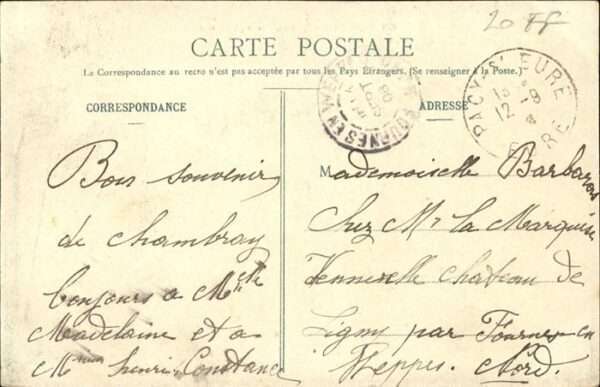 20 FF
CARTE POSTALE
La Correspondance au recto n'est pas acceptée par tous les Pays Étrangers. (Se renseigner à la Poste.)
CORRESPONDANCE
ADRESSE
FOURNES EN WEPPES
08
PACY-S-EURE
EURE
13
12
8
Bons souvenir
de Chambray
bonjours a Melle
Madelaine et a
Mme henri. Constance
Mademoiselle Barbara
Chez Mr la Marquise
château de
Ligny par Fournes en
Weppes. Nord.